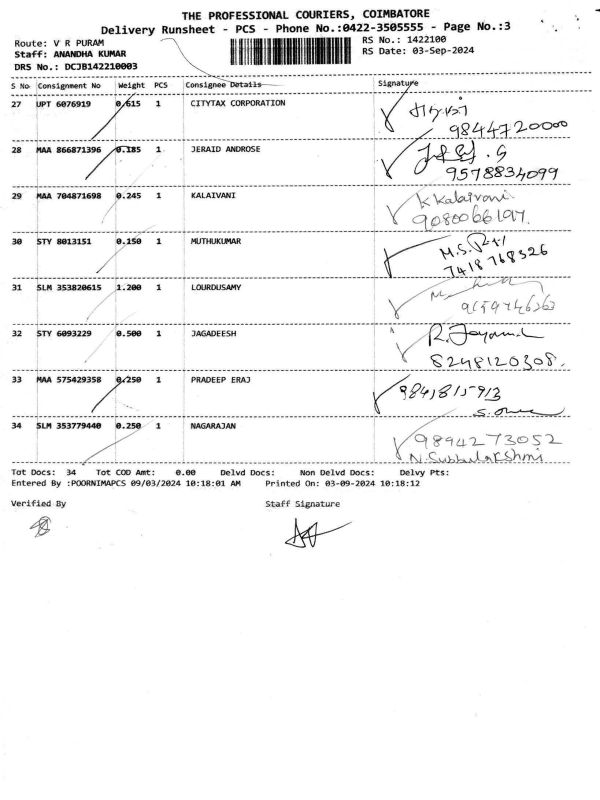 THE PROFESSIONAL COURIERS, COIMBATORE
Delivery Runsheet - PCS - Phone No.:0422-3505555 - Page No.:3
Route: V R PURAM
RS No.: 1422100
Staff: ANANDHA KUMAR
RS Date: 03-Sep-2024
DRS No.: DCJB142210003
S No Consignment No Weight PCS Consignee Details Signature
27 UPT 6076919 0.615 1 CITYTAX CORPORATION
9844720000
28 MAA 866871396 0.185 1 JERAID ANDROSE
9578834099
29 MAA 704871698 0.245 1 KALAIVANI K Kalaivani
9080066197.
30 STY 8013151 0.150 1 MUTHUKUMAR M.S.
7418768326
31 SLM 353820615 1.200 1 LOURDUSAMY
32 STY 6093229 0.500 1 JAGADEESH R.
8248120308.
33 MAA 575429358 0.250 1 PRADEEP ERAJ
34 SLM 353779440 0.250 1 NAGARAJAN 9894273052
N.Subbulakshmi
Tot Docs: 34 Tot COD Amt: 0.00 Delvd Docs: Non Delvd Docs: Delvy Pts:
Entered By :POORNIMAPCS 09/03/2024 10:18:01 AM Printed On: 03-09-2024 10:18:12
Verified By Staff Signature